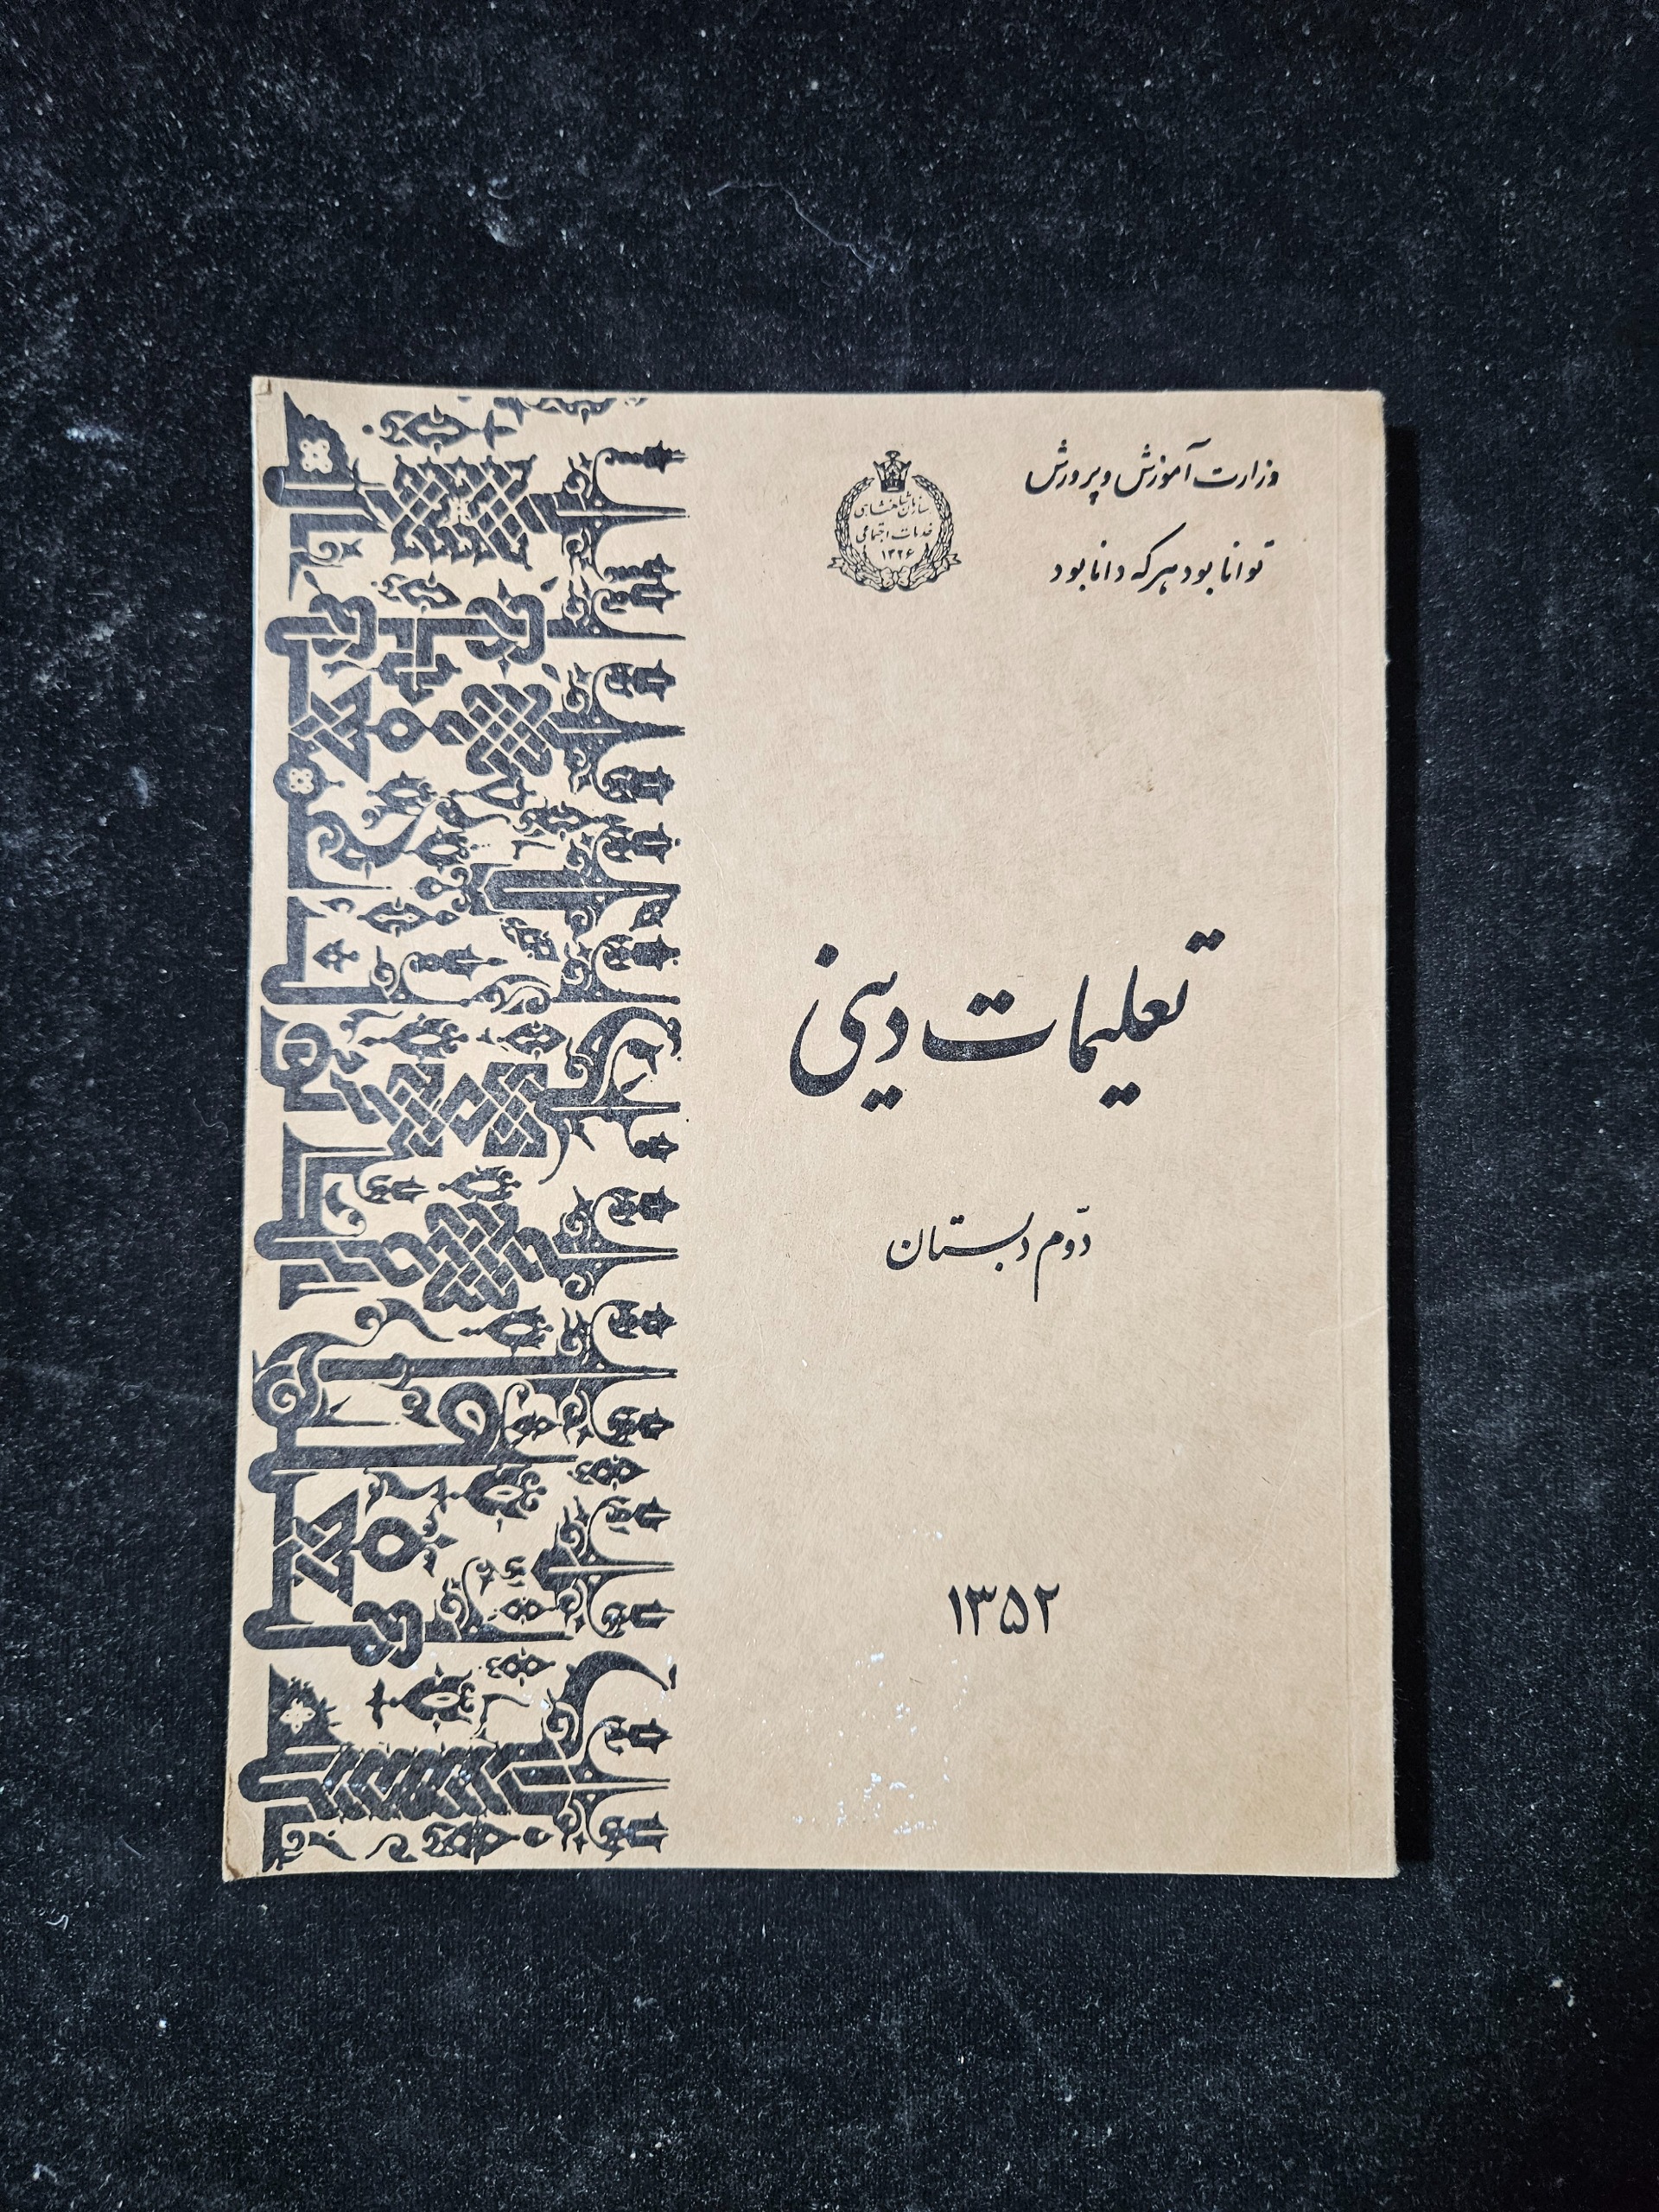 وزارت آموزش و پرورش
توانا بود هر که دانا بود
سازمان شاهنشاهی
خدمات اجتماعی
۱۳۲۶
تعلیمات دینی
دوّم دبستان
۱۳۵۲